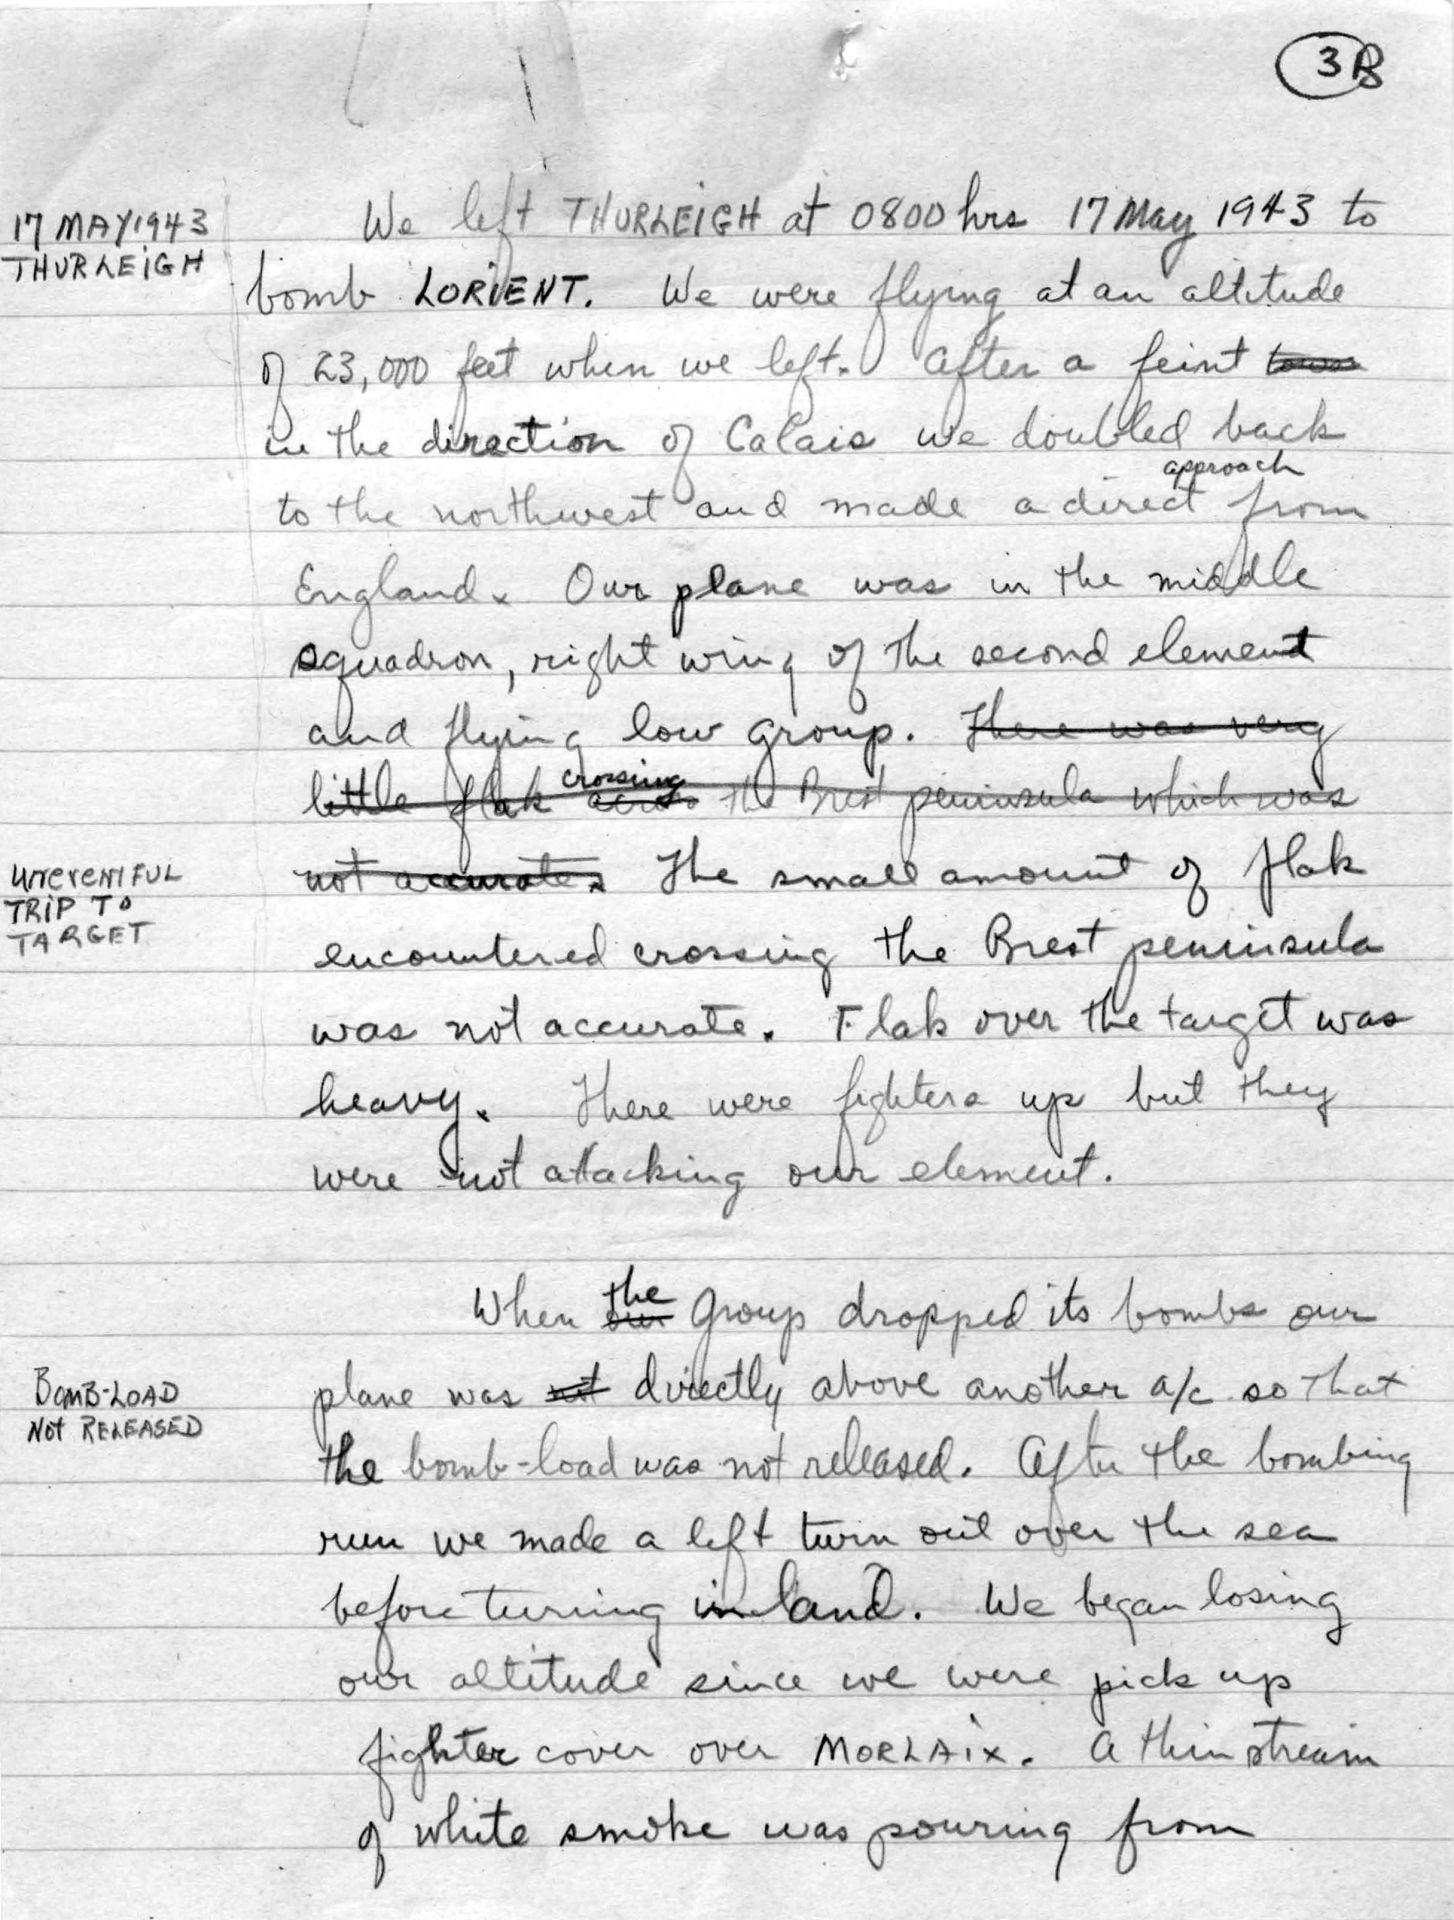 3B
17 MAY 1943
THURLEIGH
We left THURLEIGH at 0800 hrs 17 May 1943 to
bomb LORIENT. We were flying at an altitude
of 23,000 feet when we left. After a feint
in the direction of Calais we doubled back
approach
to the northwest and made a direct from
England. Our plane was in the middle
squadron, right wing of the second element
and flying low group. There was very
crossing
little flak across the Brest peninsula which was
UNEVENTFUL
TRIP TO
TARGET
not accurate. The small amount of flak
encountered crossing the Brest peninsula
was not accurate. Flak over the target was
heavy. There were fighters up but they
were not attacking our element.
the
When our Group dropped its bombs our
BOMB-LOAD
NOT RELEASED
plane was not directly above another a/c so that
the bomb-load was not released. After the bombing
run we made a left turn out over the sea
before turning inland. We began losing
our altitude since we were pick up
fighter cover over MORLAIX. A thin stream
of white smoke was pouring from